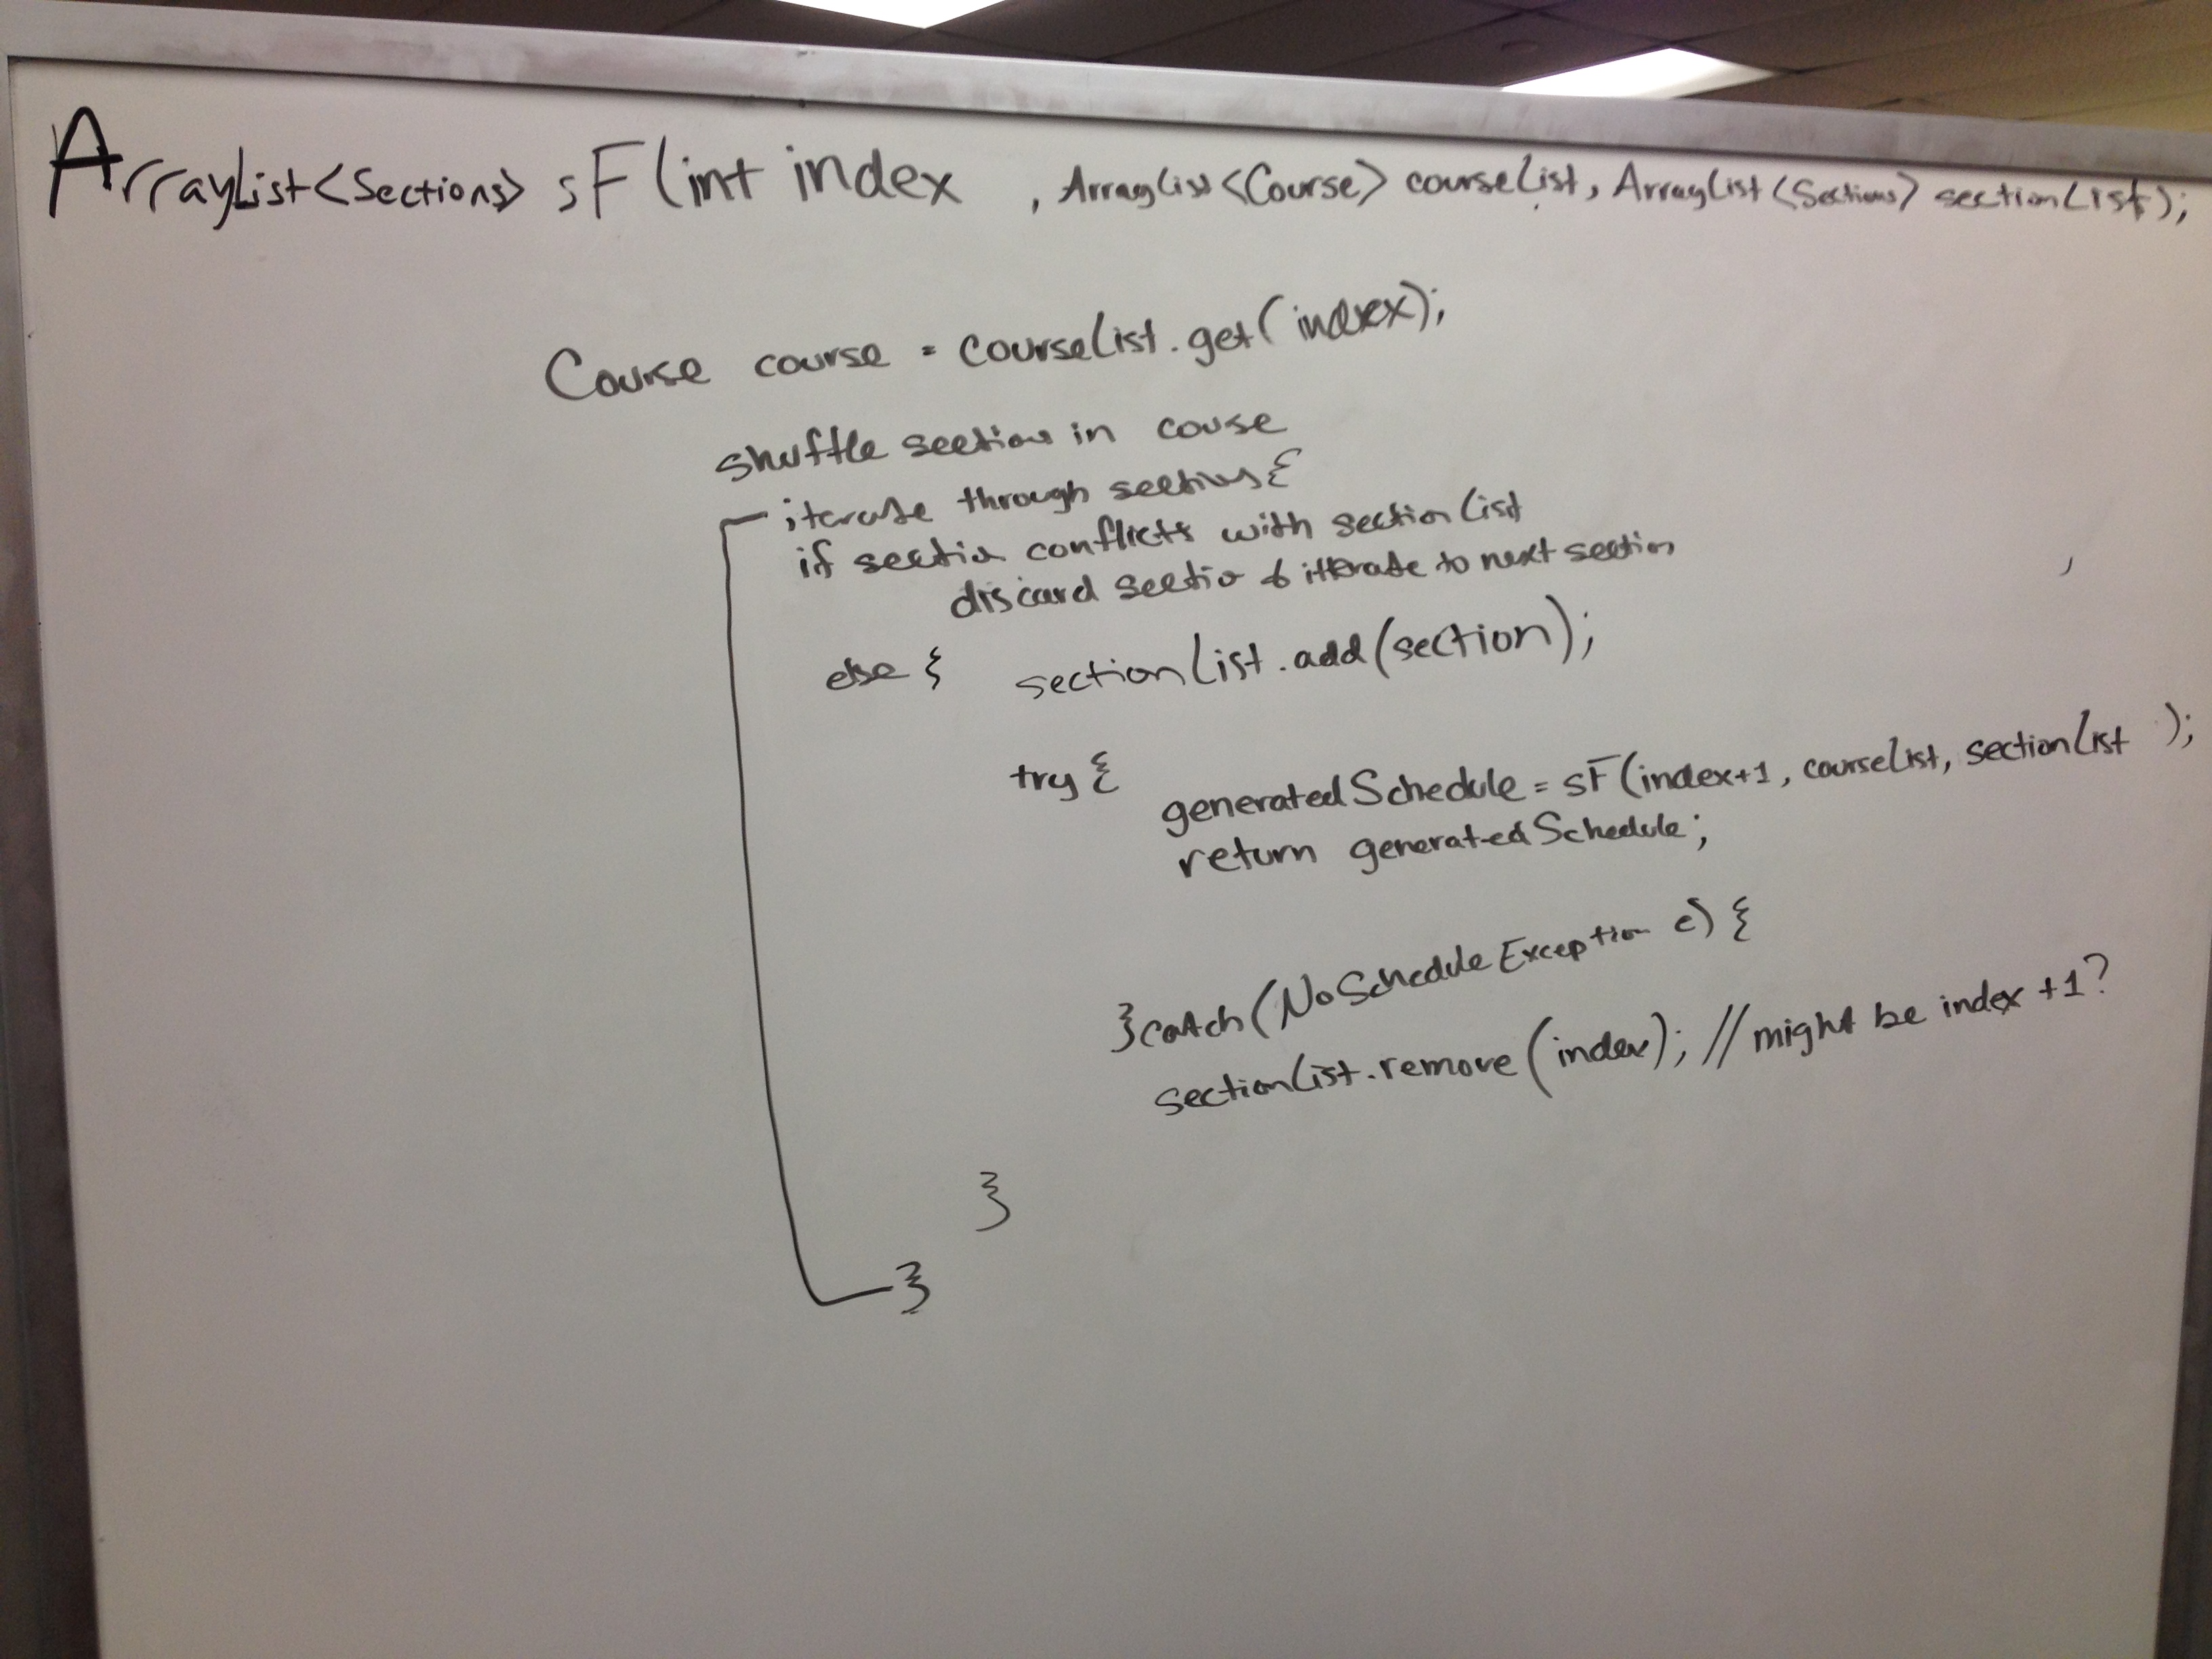 ArrayList<Sections> sF(int index , ArrayList<Course> courseList, ArrayList<Sections> sectionList);
Course course = courseList.get(index);
shuffle section in couse
iterate through sections {
if section conflicts with sectionList
discard section & itterate to next section
else { sectionList.add(section);
try {
generatedSchedule = sF(index+1, courseList, sectionList );
return generatedSchedule;
} catch (NoScheduleException e) {
sectionList.remove(index); // might be index +1?
}
}